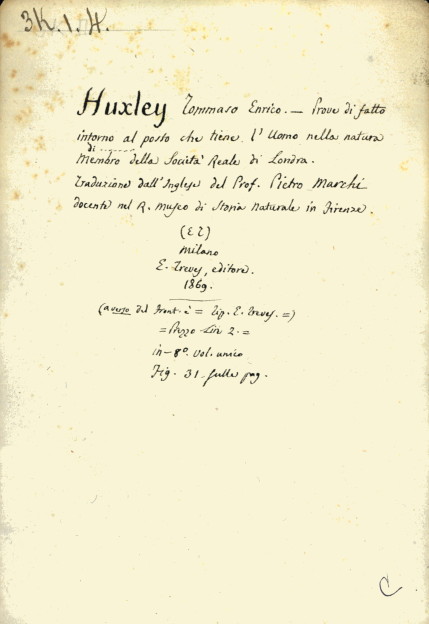 3K.1.4.
Huxley Tommaso Enrico. — Prove di fatto
intorno al posto che tiene l'Uomo nella natura
di
Membro della Società Reale di Londra.
Traduzione dall'Inglese del Prof. Pietro Marchi
docente nel R. Museo di Storia Naturale in Firenze.
(E T)
Milano
E. Treves, editore.
1869.
(averso del front. è = Tip. E. Treves. =)
= Prezzo Lire 2. =
in-8º. vol. unico
Fig. 31 sulle pag.
C